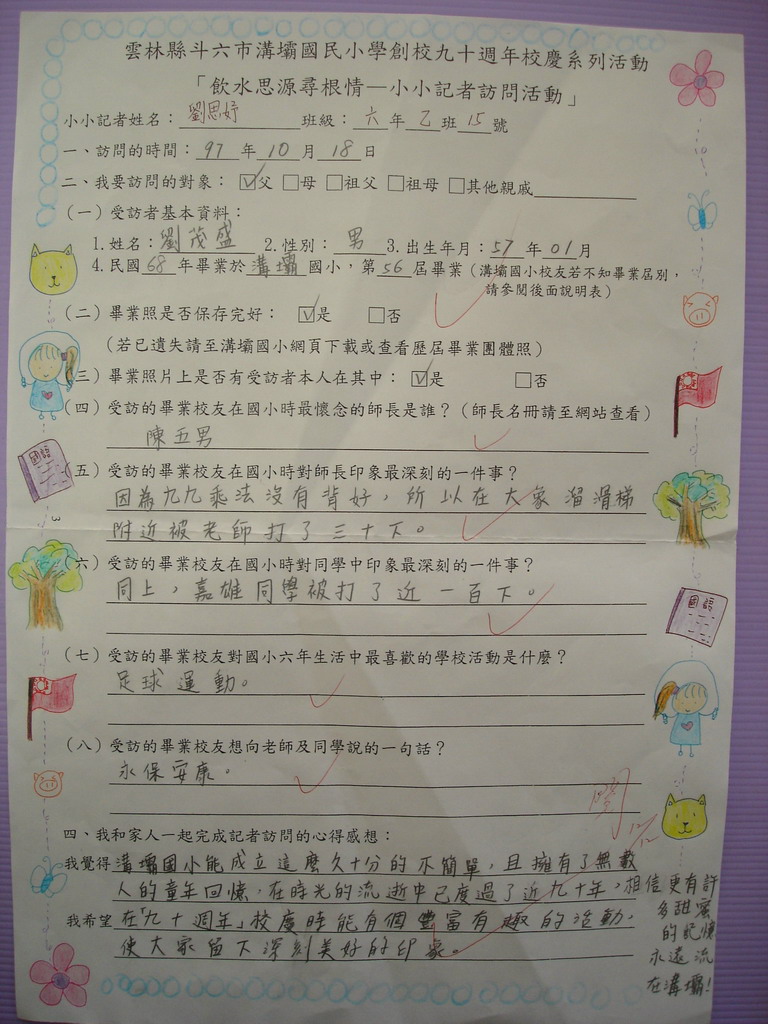 雲林縣斗六市溝壩國民小學創校九十週年校慶系列活動
「飲水思源尋根情—小小記者訪問活動」
小小記者姓名：劉思妤 班級：六年乙班15號
一、訪問的時間：97年10月18日
二、我要訪問的對象：☑父 □母 □祖父 □祖母 □其他親戚
（一）受訪者基本資料：
1.姓名：劉茂盛 2.性別：男 3.出生年月：57年01月
4.民國68年畢業於溝壩國小，第56屆畢業（溝壩國小校友若不知畢業屆別，
請參閱後面說明表）
（二）畢業照是否保存完好：☑是 □否
（若已遺失請至溝壩國小網頁下載或查看歷屆畢業團體照）
（三）畢業照片上是否有受訪者本人在其中：☑是 □否
（四）受訪的畢業校友在國小時最懷念的師長是誰？（師長名冊請至網站查看）
陳五男
（五）受訪的畢業校友在國小時對師長印象最深刻的一件事？
因為九九乘法沒有背好，所以在大象溜滑梯
附近被老師打了三十下。
（六）受訪的畢業校友在國小時對同學中印象最深刻的一件事？
同上，嘉雄同學被打了近一百下。
（七）受訪的畢業校友對國小六年生活中最喜歡的學校活動是什麼？
足球運動。
（八）受訪的畢業校友想向老師及同學說的一句話？
永保安康。
四、我和家人一起完成記者訪問的心得感想：
我覺得溝壩國小能成立這麼久十分的不簡單，且擁有了無數
人的童年回憶，在時光的流逝中已度過了近九十年，相信更有許
多甜蜜
的記憶
永遠流
在溝壩！
我希望在「九十週年」校慶時能有個豐富有趣的活動，
使大家留下深刻美好的印象。
國語
國語
3
12/12